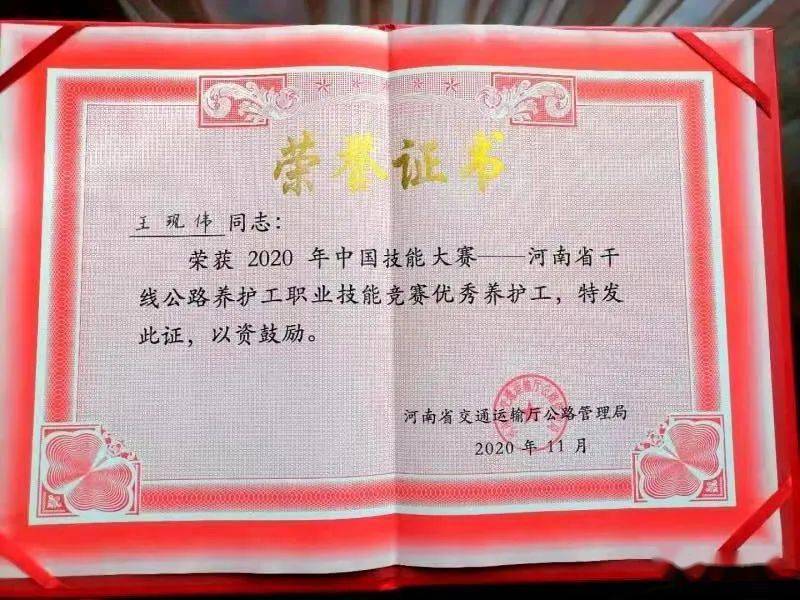 荣誉证书
王现伟同志：
荣获 2020 年中国技能大赛——河南省干
线公路养护工职业技能竞赛优秀养护工，特发
此证，以资鼓励。
河南省交通运输厅公路管理局
2020 年 11 月